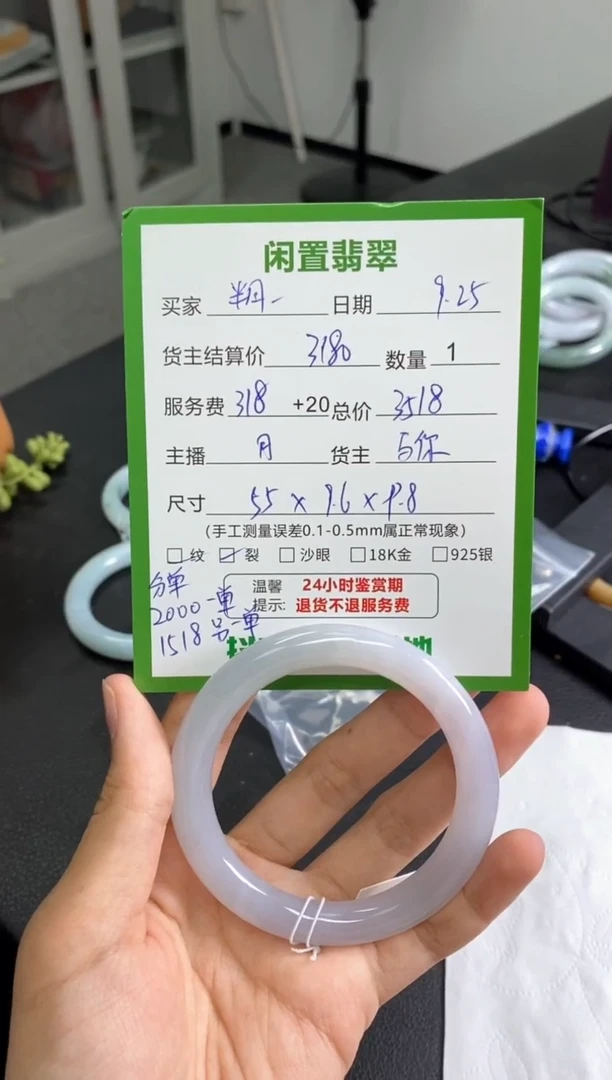 闲置翡翠
买家 日期 9.25
货主结算价 3180 数量 1
服务费 318 +20 总价 3518
主播 月 货主 与你
尺寸 55 x 9.6 x 9.8
(手工测量误差0.1-0.5mm属正常现象)
纹 裂 沙眼 18K金 925银
分单
2000 一单
1518 另一单
温馨提示: 24小时鉴赏期
退货不退服务费